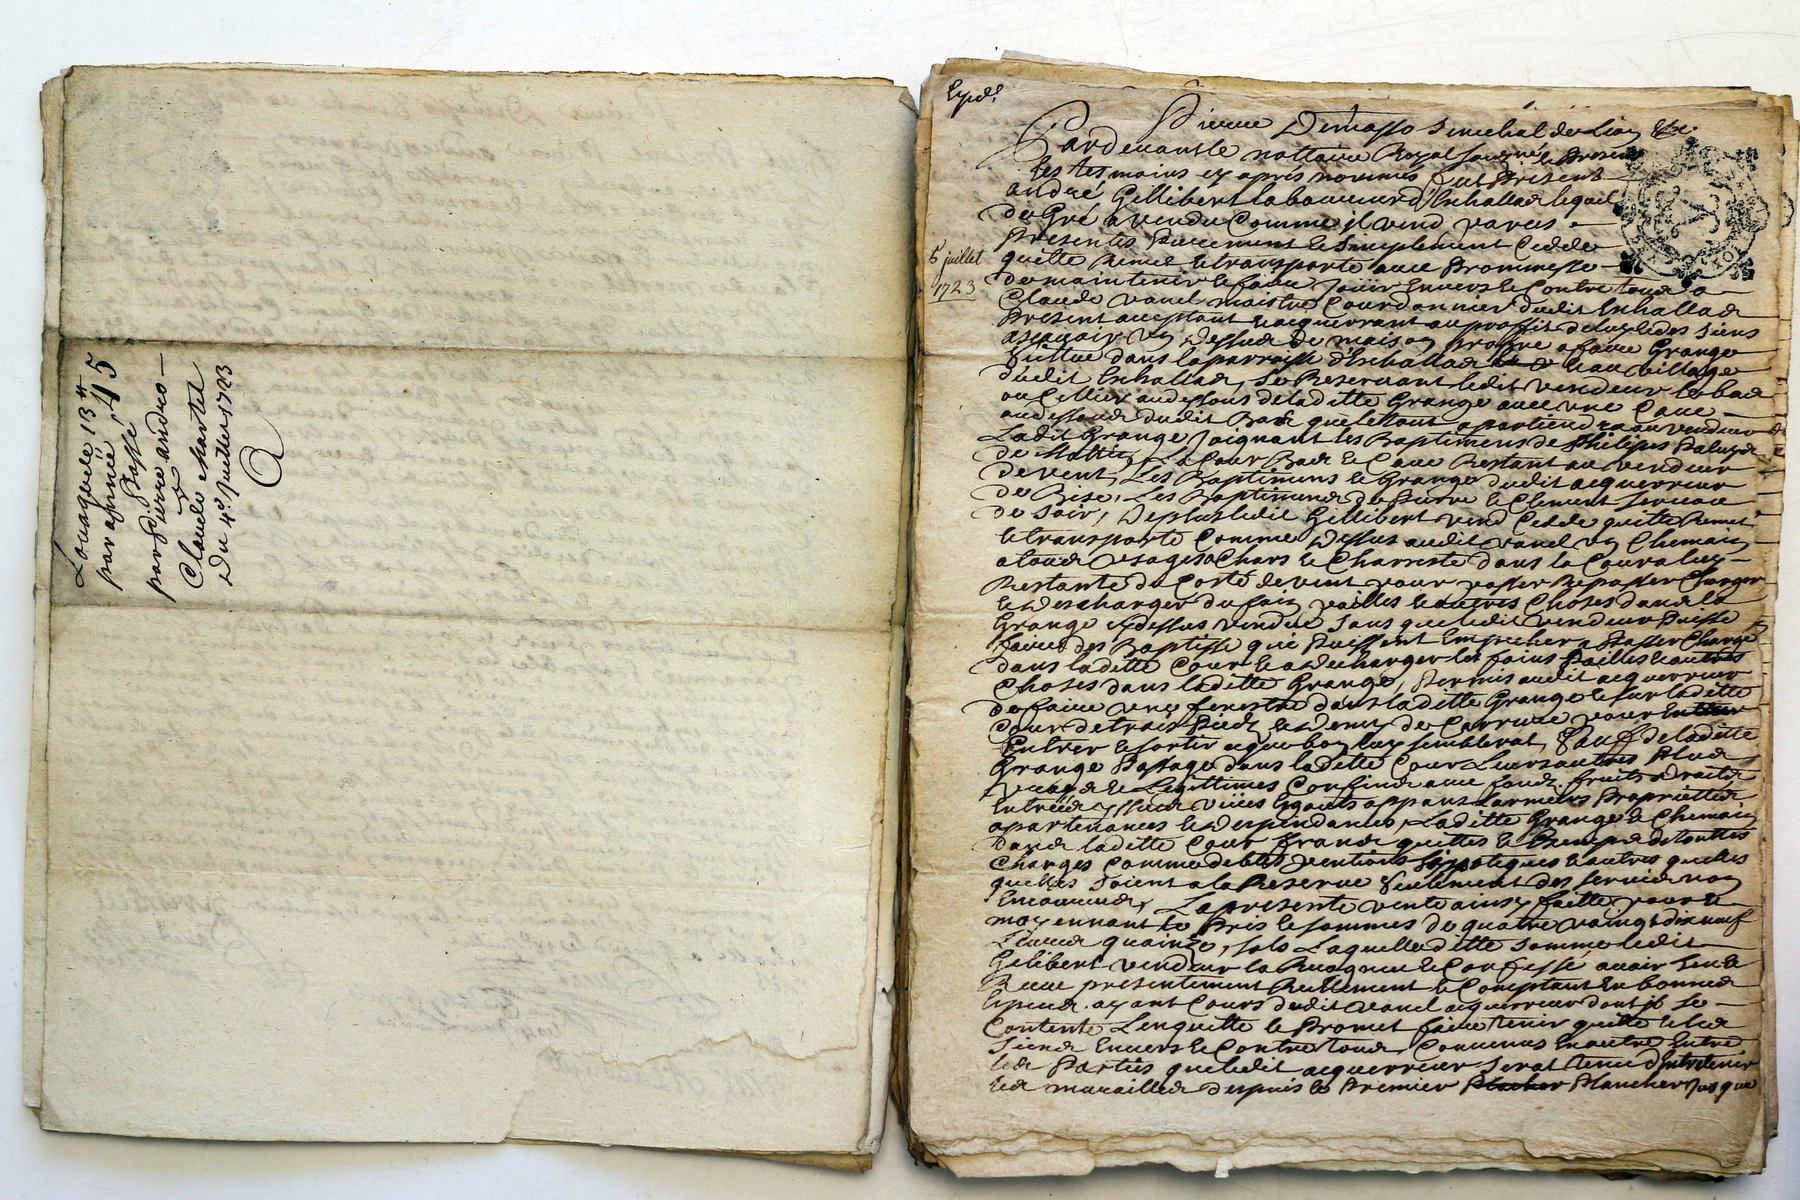 Louagerie 13
par année 45
passé
par Pierre andro
&
Claude Martet
Du 4e Juillet 1723
Expdé
Pierre Demasso Senechal de Lion &c.
Pardevant le nottaire Royal soubsné le present
les tesmoins cy apres nommés fut present
andré Gellibert laboureur d'Enhallad lequel
de Gré a vendu Comme jl vend par ces
presentes purement et simplement Cedde
5 juillet
1723
quitte Remet et transporte avec Brommesse
de maintenir et faire jouir Envers et Contre tous a
Claude vanel maistre Courdonnier dudit Enhallad
present acceptant et acquerrant au proffit de luy et des siens
ascavoir un dessus de maison propre a faire Grange
situee dans la parroisse d'Enhallad et au village
dudit Enhallad, se Reservant ledit vendeur le bas
ou Cellier au dessous de ladite Grange avec une Cave
au dessous dudit Bas que le tout apartiendra au vendeur
Ladit Grange joignant les Baptimens de Philipes
de Mattin, La Cour Bas et Cave Restant au vendeur
de vent, Les Baptimens et Grange dudit acquerreur
de Bise, Les Baptimens de Pierre et Clement
de soir, De plus ledit Gillibert vend Cedde quitte Remet
et transporte comme dessus audit vanel un Chemain
a tous usages a Chars et Charrette dans la Cour a luy
Restante du Costé de vent pour passer Repasser Charger
et descharger du foin pailles et autres Choses dans la
Grange cy dessus vendue sans que ledit vendeur puisse
faire des Baptisse qui puissent Empecher a passer Charge
dans laditte Cour et a decharger les foins pailles et autres
Choses dans laditte Grange, Permis audit acquerreur
de faire une fenestre dans laditte Grange et sur laditte
Cour de trois pieds et demy de Carrure pour Entrer
Entrer et sortir ce que bon luy semblerat, Sauf de laditte
Grange Passage dans laditte Cour Leurs autres plus
vrays et Legittimes Confins avec fonds fruits droits
Entrées yssues vües Egouts appans Larmiers Proprietter
apartenances et despendances, Laditte Grange et Chemain
Dans laditte Cour francs quittes et Exempts de touttes
Charges Comme debtes pentions hippoteques et autres quelles
quelles soient a la Reserve seulement des servis non
Encourrus, La presente vente ainsy faitte pour et
moyennant le Pris et sommes de quatre vaingt dix neuf
Livres quainze sols Laquelle ditte somme ledit
Gelibert vendeur la Recognu et Confessé avoir heu
Receu presentement Reellement et Comptant En bonnes
Especes ayant Cours dudit vanel acquerreur dont jl se
Contente Lenquitte et Promet faire tenir quitte et les
siens Envers et Contre tous, Convenus En outre Entre
les Parties que ledit acquerreur serat tenu d'Entretenir
les murailles despuis le Premier Plancher jusque